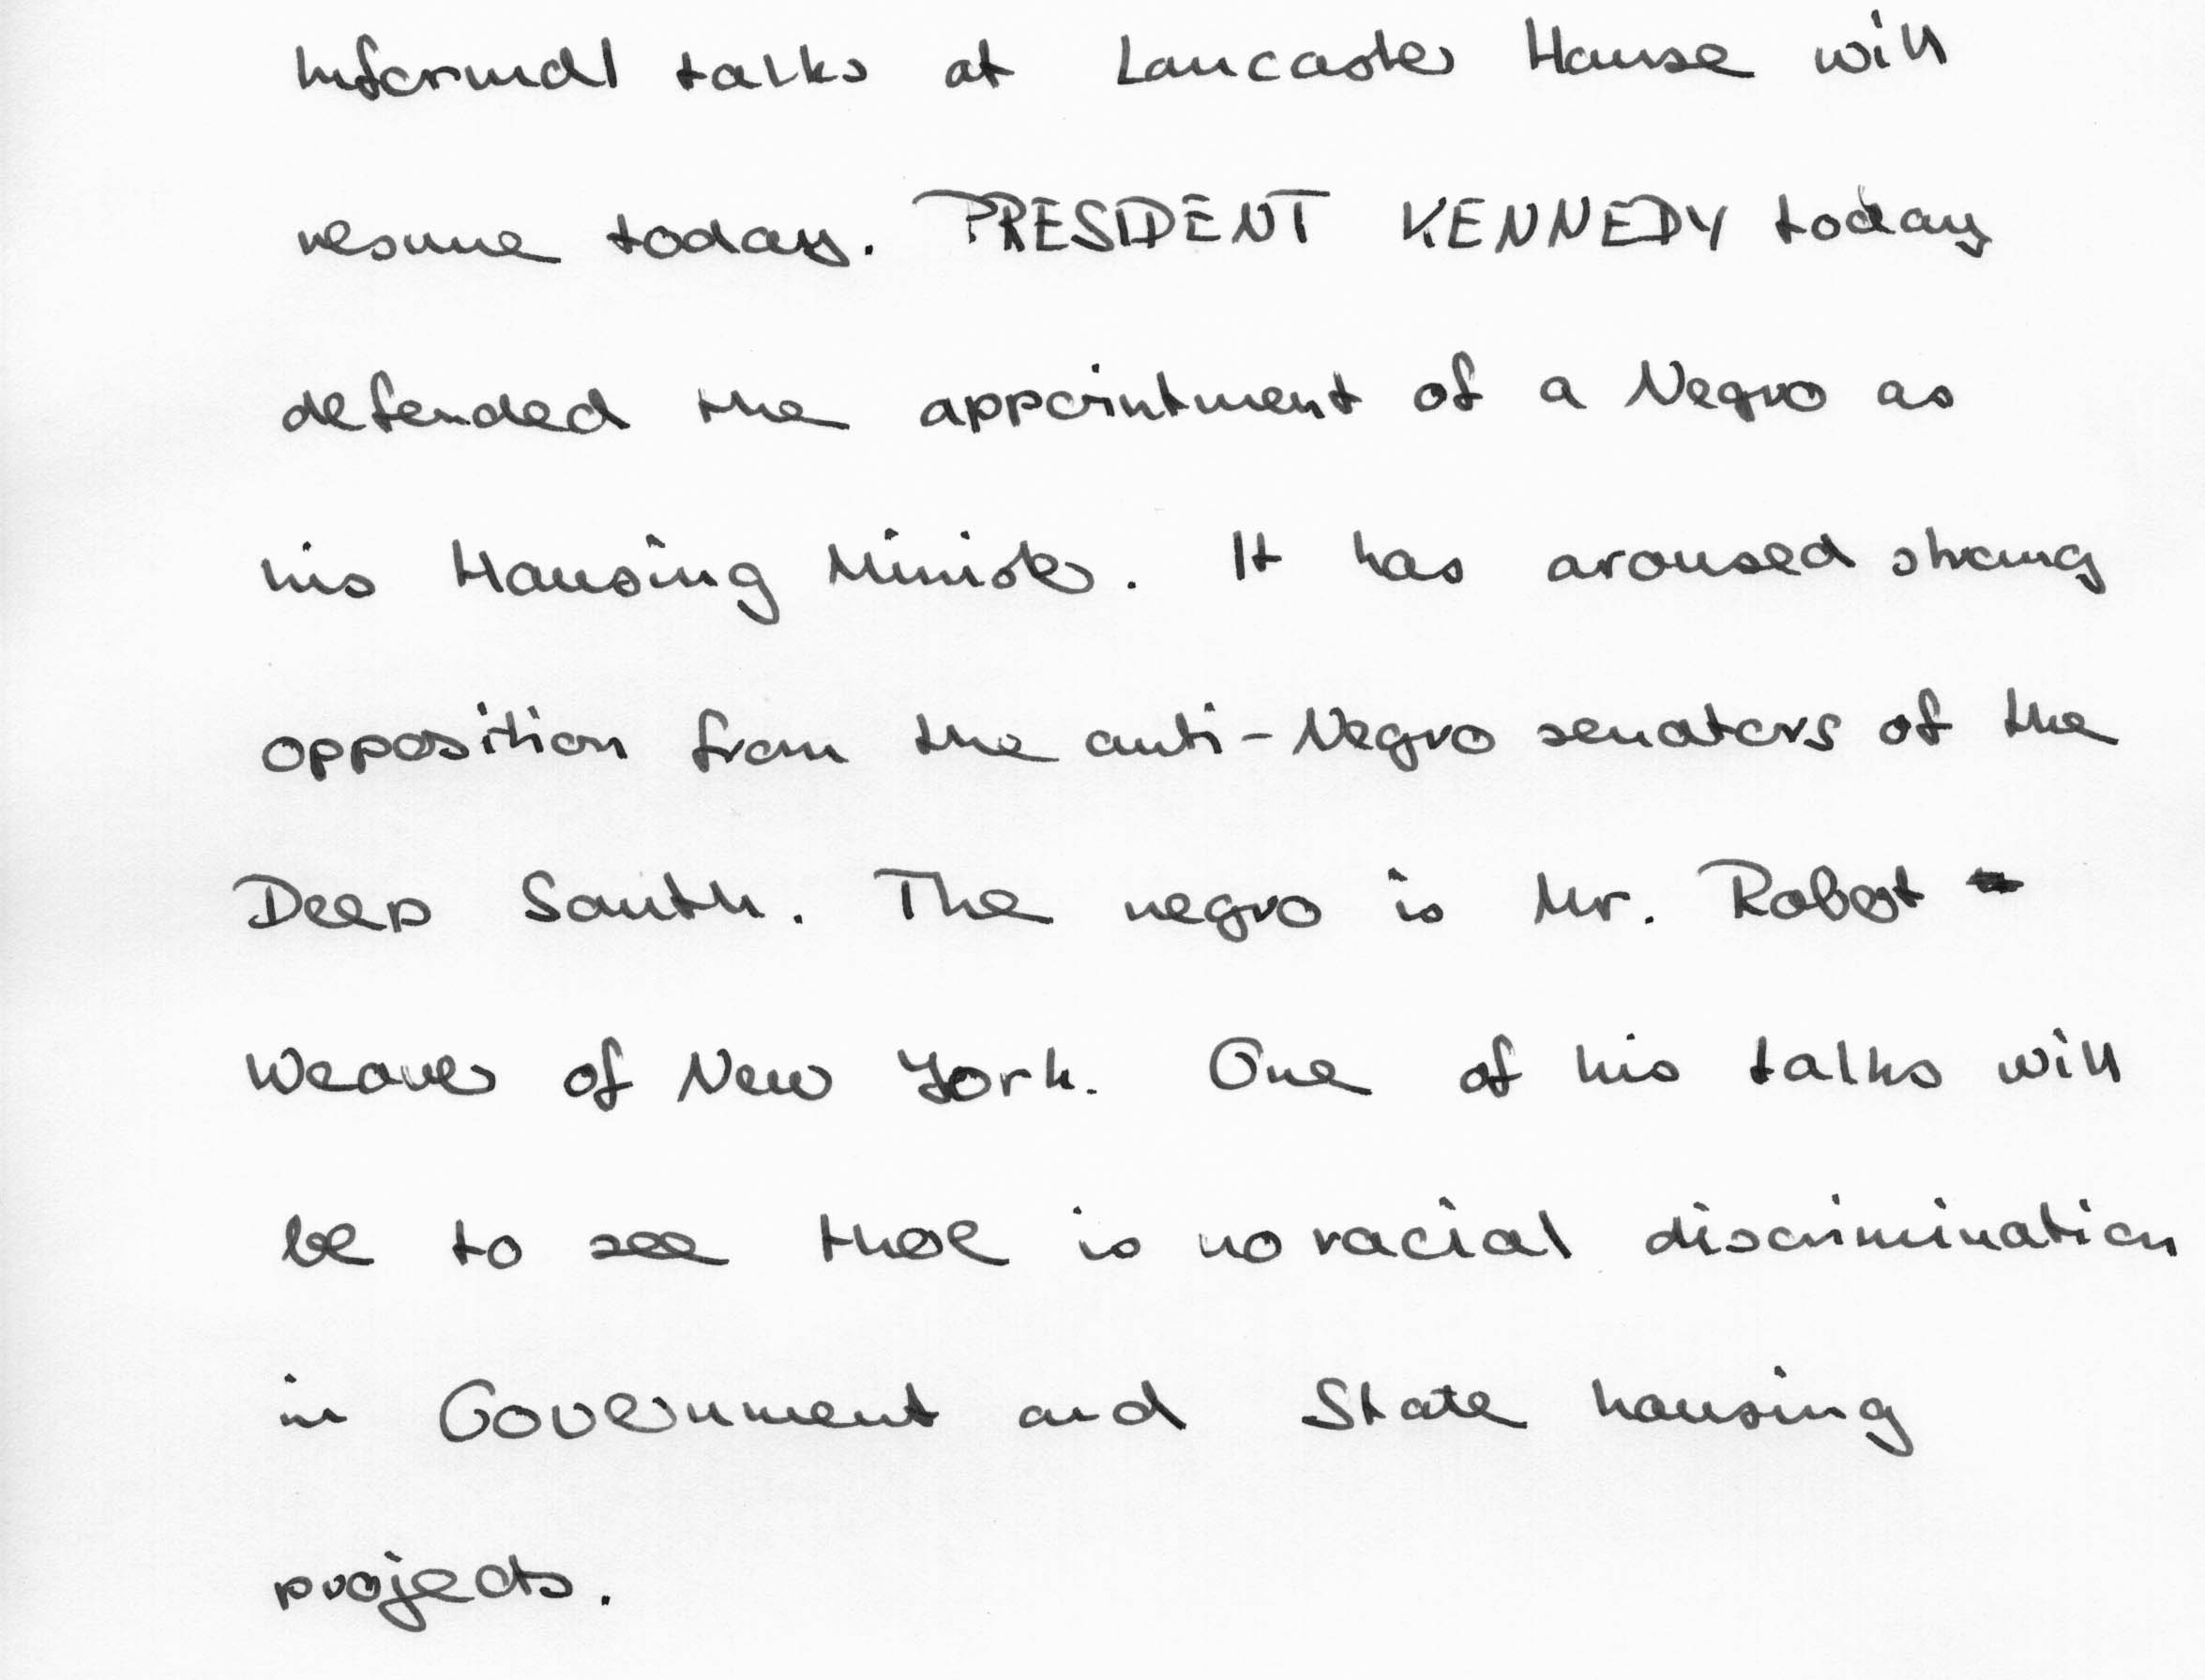 Informal talks at Lancaster House will
resume today. PRESIDENT KENNEDY today
defended the appointment of a Negro as
his Housing Minister. It has aroused strong
opposition from the anti-Negro senators of the
Deep South. The negro is Mr. Robert
Weaver of New York. One of his talks will
be to see there is no racial discrimination
in Government and State housing
projects.